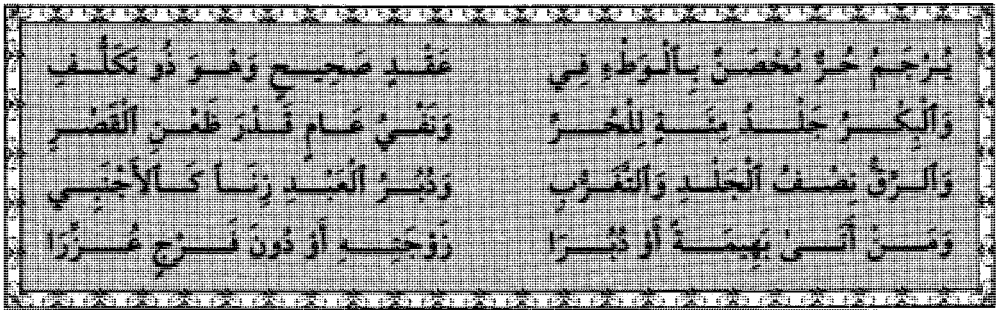 يُرْجَمُ حُرٌّ مُحْصَنٌ بِٱلْوَطْءِ فِي عَقْدٍ صَحِيحٍ وَهْوَ ذُو تَكَلُّفِ
وَٱلْبِكْرُ جَلْدُ مِئَةٍ لِلْحُرِّ وَنَفْيُ عَامٍ قَدْرَ ظَعْنِ ٱلْقَصْرِ
وَٱلرِّقُّ نِصْفُ ٱلْجَلْدِ وَٱلتَّغَرُّبِ وَدُبْرُ ٱلْعَبْدِ زِنَاً كَٱلأَجْنَبِي
وَمَنْ أَتَىٰ بَهِيمَةً أَوْ دُبْرَا زَوْجَتِهِ أَوْ دُونَ فَرْجٍ عُزِّرَا